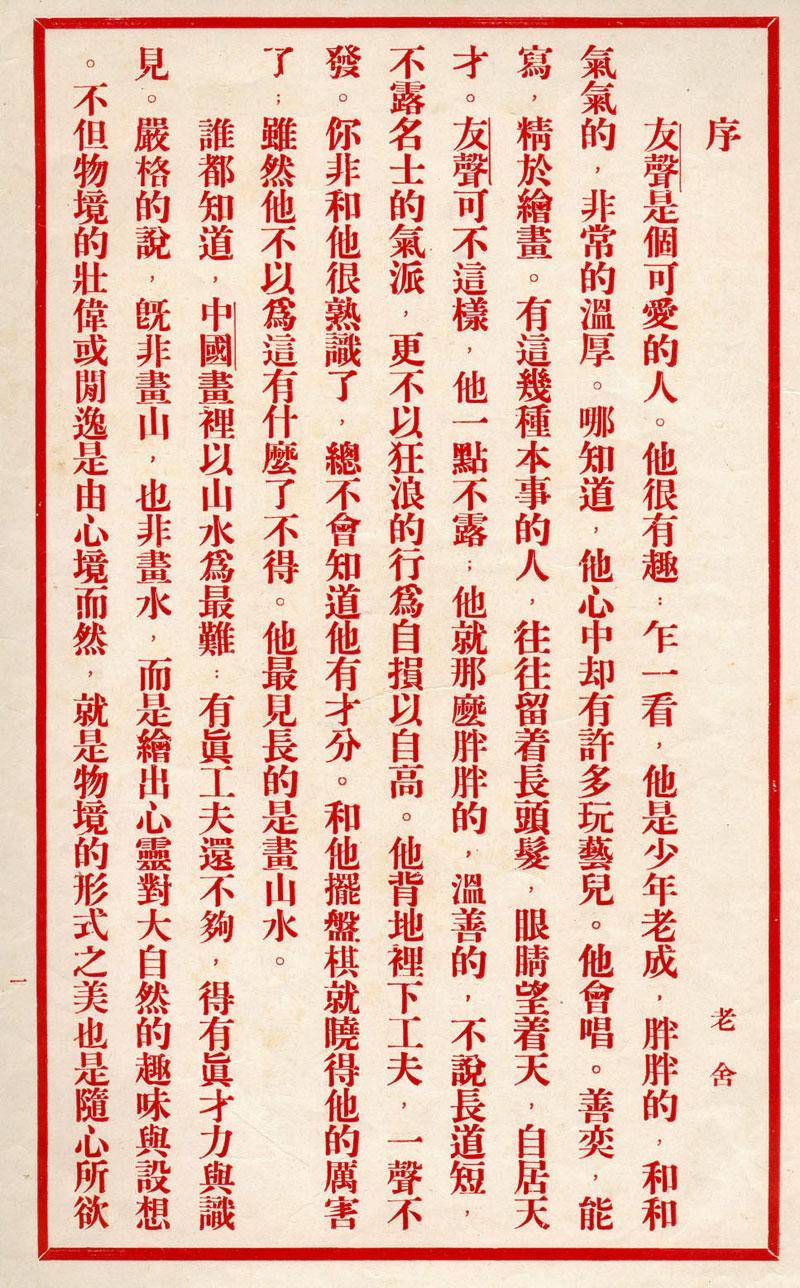 序
老舍
友聲是個可愛的人。他很有趣：乍一看，他是少年老成，胖胖的，和和
氣氣的，非常的溫厚。哪知道，他心中却有許多玩藝兒。他會唱。善奕，能
寫，精於繪畫。有這幾種本事的人，往往留着長頭髮，眼睛望着天，自居天
才。友聲可不這樣，他一點不露；他就那麼胖胖的，溫善的，不說長道短，
不露名士的氣派，更不以狂浪的行爲自損以自高。他背地裡下工夫，一聲不
發。你非和他很熟識了，總不會知道他有才分。和他擺盤棋就曉得他的厲害
了；雖然他不以爲這有什麼了不得。他最見長的是畫山水。
誰都知道，中國畫裡以山水爲最難：有眞工夫還不夠，得有眞才力與識
見。嚴格的說，旣非畫山，也非畫水，而是繪出心靈對大自然的趣味與設想
。不但物境的壯偉或閒逸是由心境而然，就是物境的形式之美也是隨心所欲
一